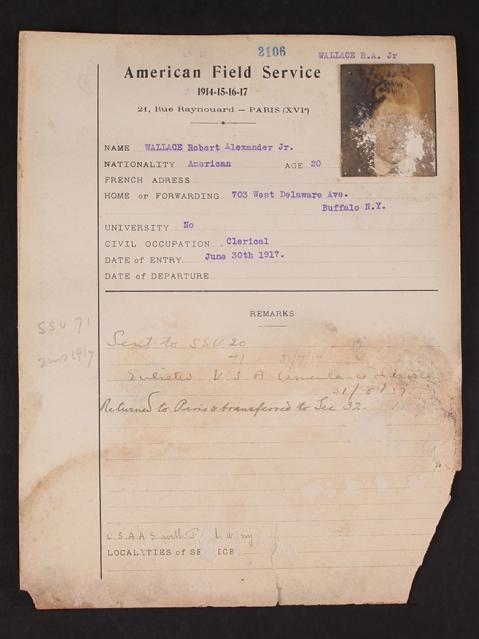 2106
WALLACE R.A. Jr
American Field Service
1914-15-16-17
21, Rue Raynouard — PARIS (XVIe)
NAME WALLACE Robert Alexander Jr.
NATIONALITY American AGE 20
FRENCH ADRESS
HOME or FORWARDING 703 West Delaware Ave.
Buffalo N.Y.
UNIVERSITY No
CIVIL OCCUPATION Clerical
DATE of ENTRY June 30th 1917.
DATE of DEPARTURE
REMARKS
SSU 71
1917
Sent to SSU 20
71 31/7/17
Enlisted U.S.A Ambulance Service
31/8/17
Returned to Paris & transferred to Sec 32.
U.S.A.A.S. with
LOCALITIES of SE ICE